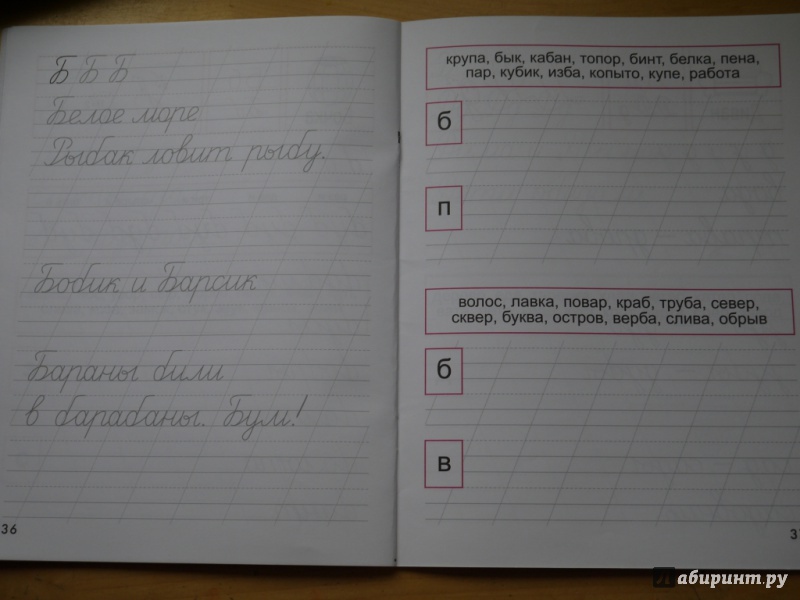 Б Б Б
Белое море
Рыбак ловит рыбу.
Бобик и Барсик
Бараны били
в барабаны. Бум!
36
крупа, бык, кабан, топор, бинт, белка, пена,
пар, кубик, изба, копыто, купе, работа
б
п
волос, лавка, повар, краб, труба, север,
сквер, буква, остров, верба, слива, обрыв
б
в
3
Лабиринт.ру